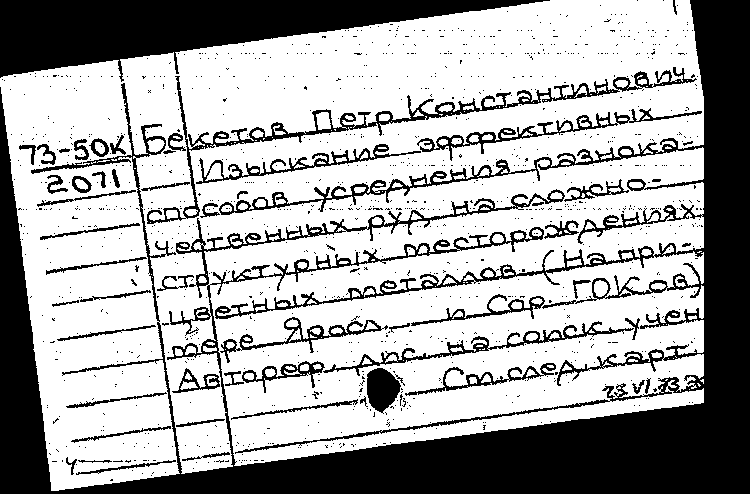 73-50К Бекетов, Петр Константинович.
2071 Изыскание эффективных
способов усреднения разнока-
чественных руд на сложно-
структурных месторождениях
цветных металлов. (На при-
мере Яросл. и Сор. ГОКов)
Автореф. дис. на соиск. учен
См. след. карт.
23 VI.73